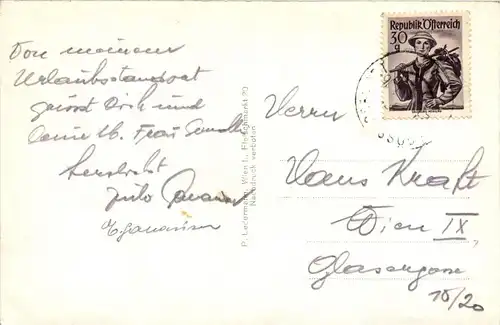 Von meinem
Urlaubsstandort
grüsst Dich und
Deine lb. Frau Gemahlin
herzlichst
P. Ledermann, Wien I., Fleischmarkt 20
Nachdruck verboten
Republik Österreich
30
g
Herrn
Hans Kraft
Wien IX,
Glasergasse
10/20